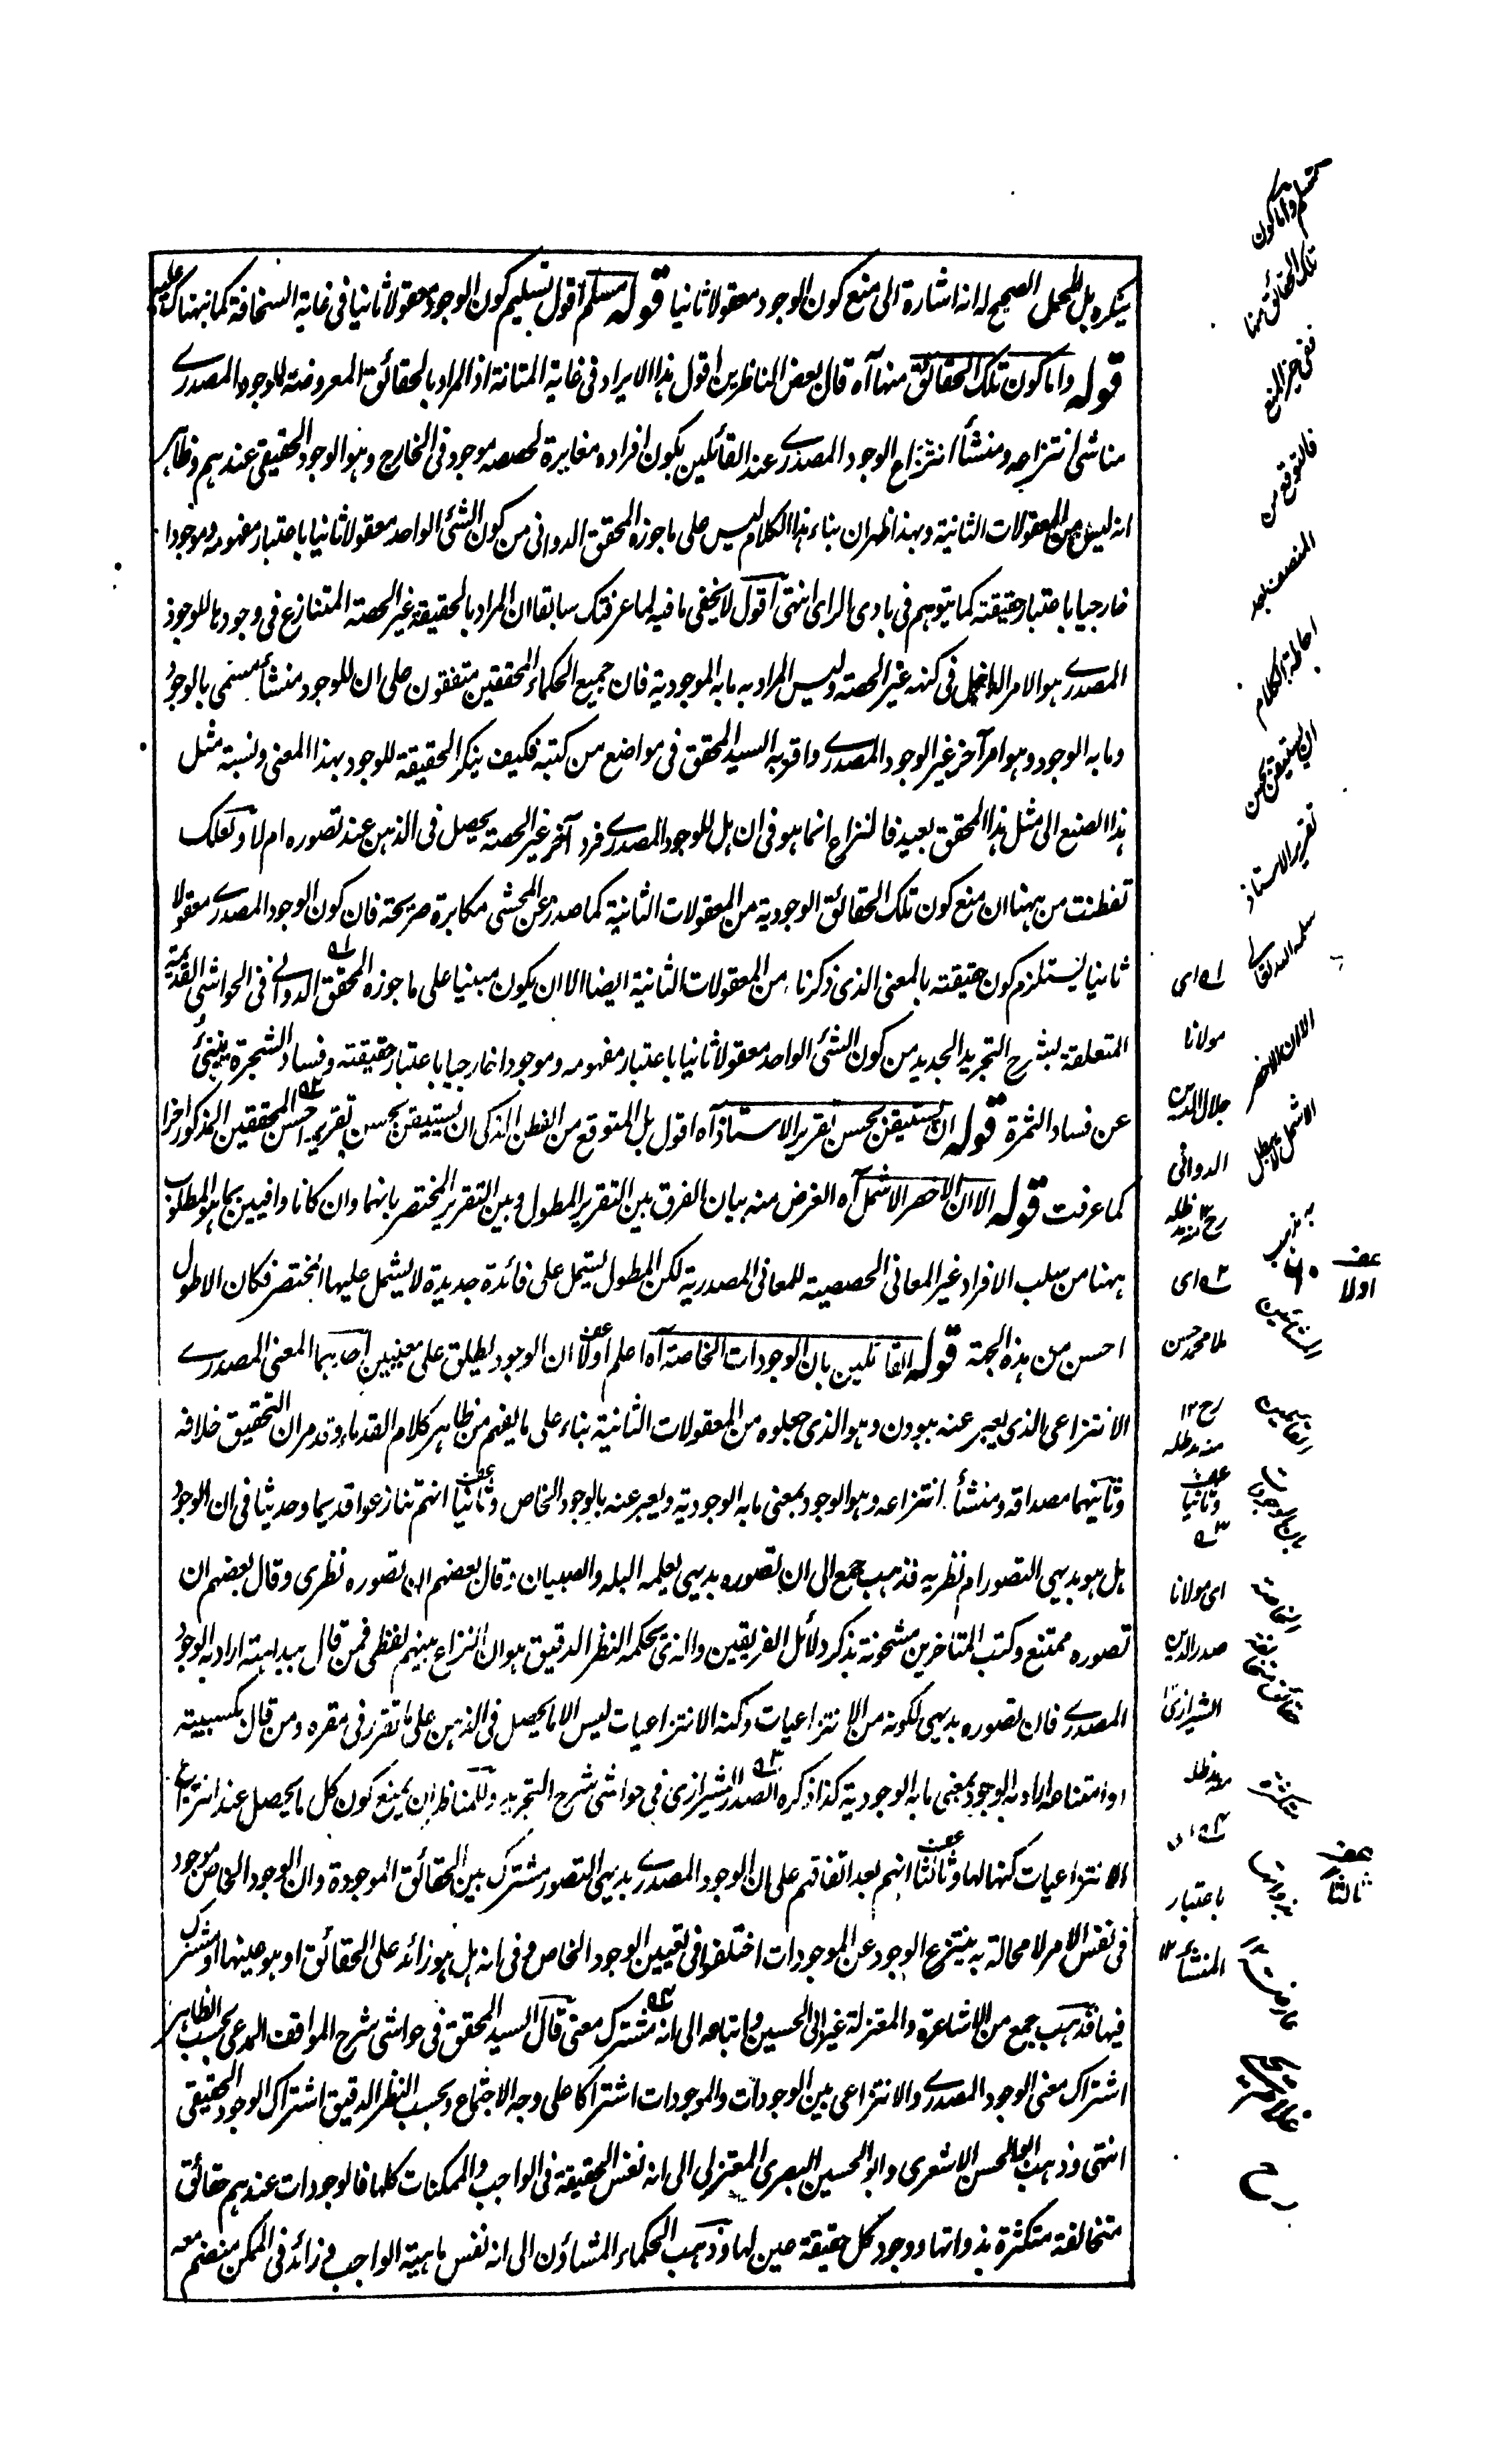 ينكره بل المحمل الصحيح له انه اشارة الى منع كون الوجود معقولا ثانيا قوله مسلم اقول تسليم كون الوجود معقولا ثانيا في غاية السخافة كما نبهناك عليه
قوله واما كون تلك الحقائق منها آه قال بعض الناظرين اقول هذا الايراد في غاية المتانة اذ المراد بالحقائق المعروضة للوجود المصدرى
مناشئ انتزاعه ومنشأ انتزاع الوجود المصدرى عند القائلين بكون افراده مغايرة لحصصه موجود في الخارج وهو الوجود الحقيقى عندهم وظاهر
انه ليس من المعقولات الثانية وبهذا ظهر ان بناء هذا الكلام ليس على ما جوزه المحقق الدوانى من كون الشئ الواحد معقولا ثانيا باعتبار مفهومه وموجودا
خارجيا باعتبار حقيقته كما يتوهم في بادى الراى انتهى اقول لا يخفى ما فيه لما عرفتك سابقا ان المراد بالحقيقة غير الحصة المتنازع في وجودها للوجود
المصدرى هو الامر الداخل في كنهه غير الحصة وليس المراد به ما به الموجودية فان جميع الحكماء المحققين متفقون على ان للوجود منشأ يسمى بالوجود
وما به الوجود وهو امر آخر غير الوجود المصدرى واقر به السيد المحقق في مواضع من كتبه فكيف ينكر الحقيقة للوجود بهذا المعنى ونسبة مثل
هذا الصنع الى مثل هذا المحقق بعيد فالنزاع انما هو في ان هل للوجود المصدرى فرد آخر غير الحصة يحصل في الذهن عند تصوره ام لا ولعلك
تفطنت من ههنا ان منع كون تلك الحقائق الوجودية من المعقولات الثانية كما صدر عن المحشى مكابرة صريحة فان كون الوجود المصدرى معقولا
ثانيا يستلزم كون حقيقته بالمعنى الذى ذكرنا من المعقولات الثانية ايضا الا ان يكون مبنيا على ما جوزه المحقق الدوانى في الحواشى القديمة
المتعلقة بشرح التجريد الجديد من كون الشئ الواحد معقولا ثانيا باعتبار مفهومه وموجودا خارجيا باعتبار حقيقته وفساد الشجرة ينبئ
عن فساد الثمرة قوله ان يستيقن بحسن تقرير الاستاذ آه اقول بل المتوقع من الفطن الذكى ان يستيقن بحسن تقرير حسن المحققين المذكور آخرا
كما عرفت قوله الا ان الاخصر الاشمل آه الغرض منه بيان الفرق بين التقرير المطول وبين التقرير المختصر بانهما وان كانا وافيين بما هو المطلوب
ههنا من سلب الافراد غير المعانى الحصصية للمعانى المصدرية لكن المطول يشتمل على فائدة جديدة لا يشمل عليها المختصر فكان الاطول
احسن من هذه الجهة قوله القائلين بان الوجودات الخاصة آه اعلم اولا ان الوجود يطلق على معنيين احدهما المعنى المصدرى
الانتزاعى الذى يعبر عنه ببودن وهو الذى جعلوه من المعقولات الثانية بناء على ما يفهم من ظاهر كلام القدماء وقد مر ان التحقيق خلافه
وثانيهما مصداقه ومنشأ انتزاعه وهو الوجود بمعنى ما به الوجودية ويعبر عنه بالوجود الخاص وثانيا انهم تنازعوا قديما وحديثا في ان الوجود
هل هو بديهى التصور ام نظريه فذهب جمع الى ان تصوره بديهى يعلمه البله والصبيان وقال بعضهم ان تصوره نظرى وقال بعضهم ان
تصوره ممتنع وكتب المتاخرين مشحونة بذكر دلائل الفريقين والذى يحكمه النظر الدقيق هو ان النزاع بينهم لفظى فمن قال ببداهته اراد به الوجود
المصدرى فان تصوره بديهى لكونه من الانتزاعيات وكنه الانتزاعيات ليس الا ما يحصل في الذهن على ما تقرر في مقره ومن قال بكسبيته
او امتناعه اراد به الوجود بمعنى ما به الوجودية كذا ذكره الصدر الشيرازى في حواشى شرح التجريد وللمناظر ان يمنع كون كل ما يحصل عند انتزاع
الانتزاعيات كنها لها وثالثا انهم بعد اتفاقهم على ان الوجود المصدرى بديهى التصور مشترك بين الحقائق الموجودة وان الوجود الخاص موجود
في نفس الامر لا محالة به ينتزع الوجود عن الموجودات اختلفوا في تعيين الوجود الخاص وفي انه هل هو زائد على الحقائق او هو عينها او مشترك
فيها فذهب جمع من الاشاعرة والمعتزلة غير ابى الحسين واتباعه الى انه مشترك معنى قال السيد المحقق في حواشى شرح المواقف المدعى بحسب الظاهر
اشتراك معنى الوجود المصدرى والانتزاعى بين الوجودات والموجودات اشتراكا على وجه الاجتماع وبحسب النظر الدقيق اشتراك الوجود الحقيقى
انتهى وذهب ابو الحسن الاشعرى وابو الحسين البصرى المعتزلى الى انه نفس الحقيقة في الواجب والممكنات كلها فالوجودات عندهم حقائق
متخالفة متكثرة بذواتها ووجود كل حقيقة عين لها وذهب الحكماء المشاؤن الى انه نفس ماهية الواجب وزائد في الممكن منضم معه
مسلم واما كون
تلك الحقائق منها
ففى حيز المنع
فالمتوقع من
المنصف بعد
احاطة الكلام
ان يستيقن بحسن
تقرير الاستاذ
سلمه الله تعالى
الا ان الاخصر
الاشمل لا يبطل
به مذهب
القائلين
بان الوجودات
الخاصة
حقائق
متكثرة
بذواتها
اى
مولانا
جلال الدين
الدوانى
رح ١٢ منه مد ظله
اى
ملا محمد حسن
رح ١٢
منه مد ظله
وثانيا
اى مولانا
صدر الدين
الشيرازى
منه مد ظله
اى
باعتبار
المنشأ ١٢
اولا
ثالثا